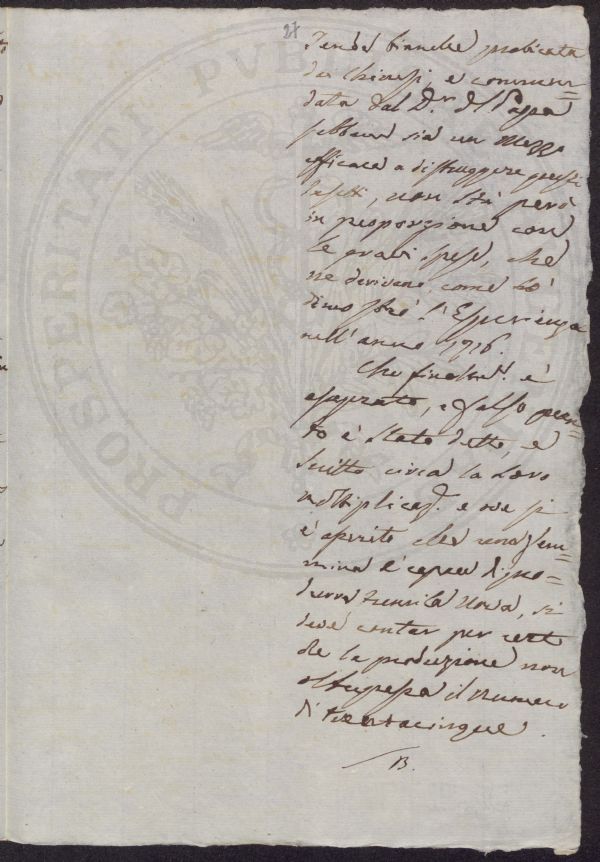 27
Tende bianche praticata
da Chiarissi, e commen=
data dal D.r del Papa
sebbene sia un mezzo
efficace a distruggere questi
Insetti, non sta però
in proporzione con
le gravi spese, che
ne derivano, come lo
dimostrò l'Esperienza
nell'anno 1716.
Che finalm.te è
esagerato, e falso quan=
to è stato detto, e
scritto circa la loro
moltiplicaz.e e ove si
è asserito che una fem=
mina è capace di pro=
durre tremila Uova, si
deve contar per cert
che la produzione non
oltrepassa il numero
di trentacinque.
B.
PROSPERITATI PVBL